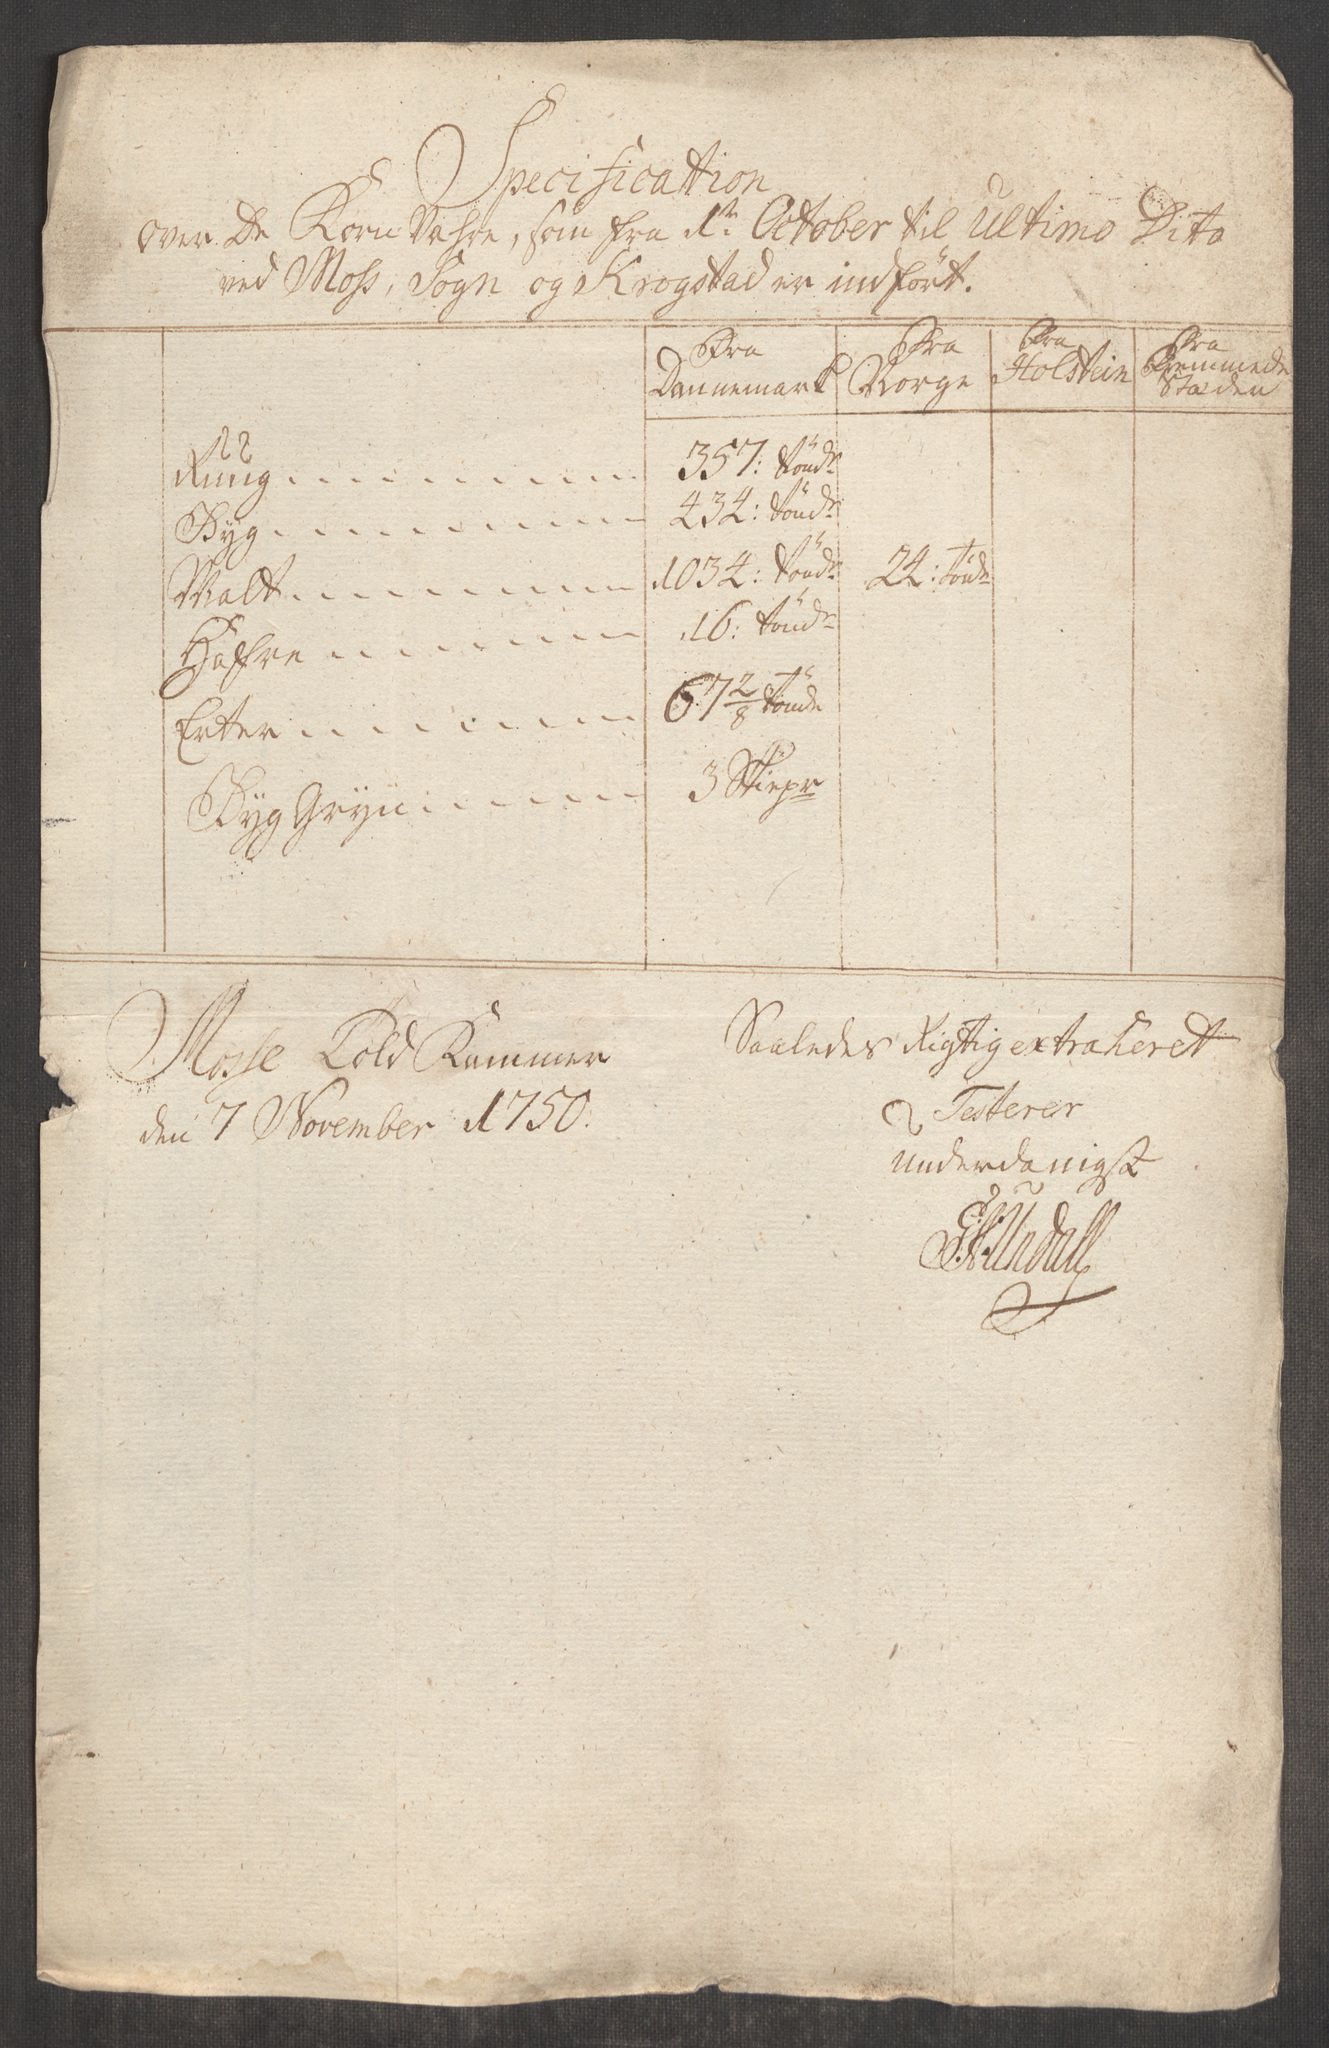 Specification
over De Korn Vahre, som fra 1te October til Ultimo Dito
ved Moss, Sogn og Krogstad er indført.
Fra Dannemark Fra Norge Fra Holstein Fra Fremmede Stæder
Ruug 357: tønde
Byg 434: tønde
Malt 1034: tønde 24: tønde
Hafre 16: tønde
Erter 67 2/8 tønde
Byg Gryn 3 Skiepr
Mosse Told Kammer
den 7 November 1750.
Saaledes Rigtig extraheret
Testerer
underdanigst